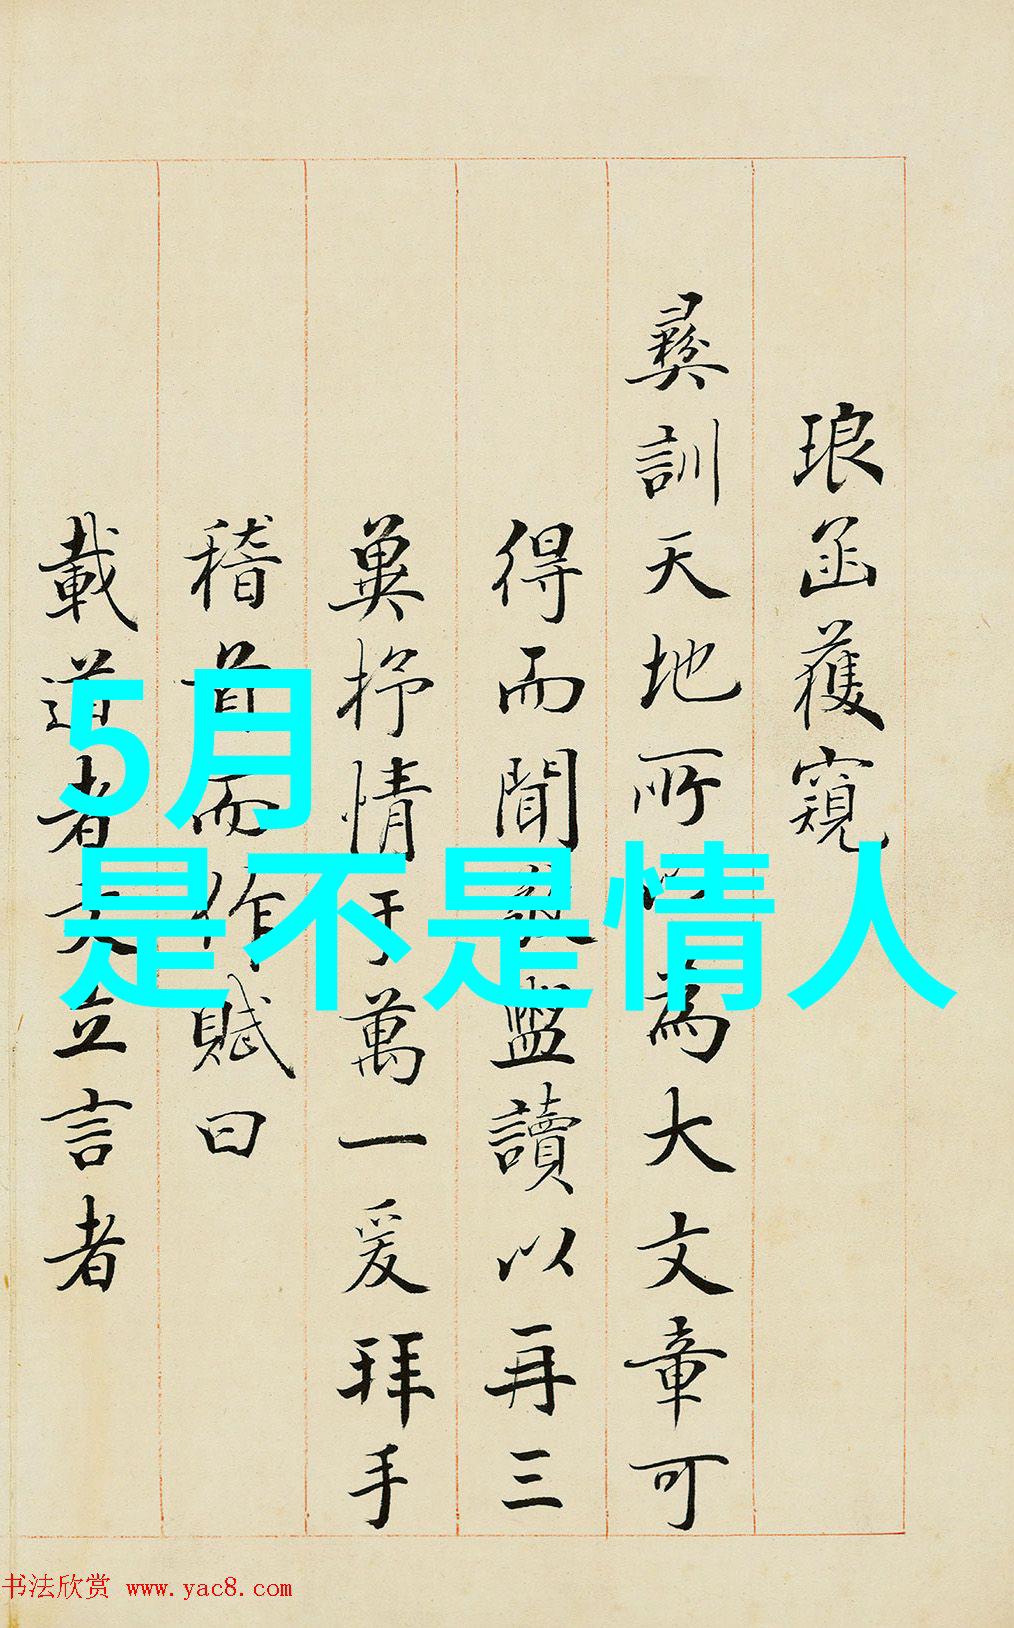 琅函獲窺
彞訓天地所以為大文章可
得而聞敬盥讀以再三
冀抒情于萬一爰拜手
稽首而作賦曰
載道者文立言者
5月
是不是情人
书法欣赏 www.yac8.com